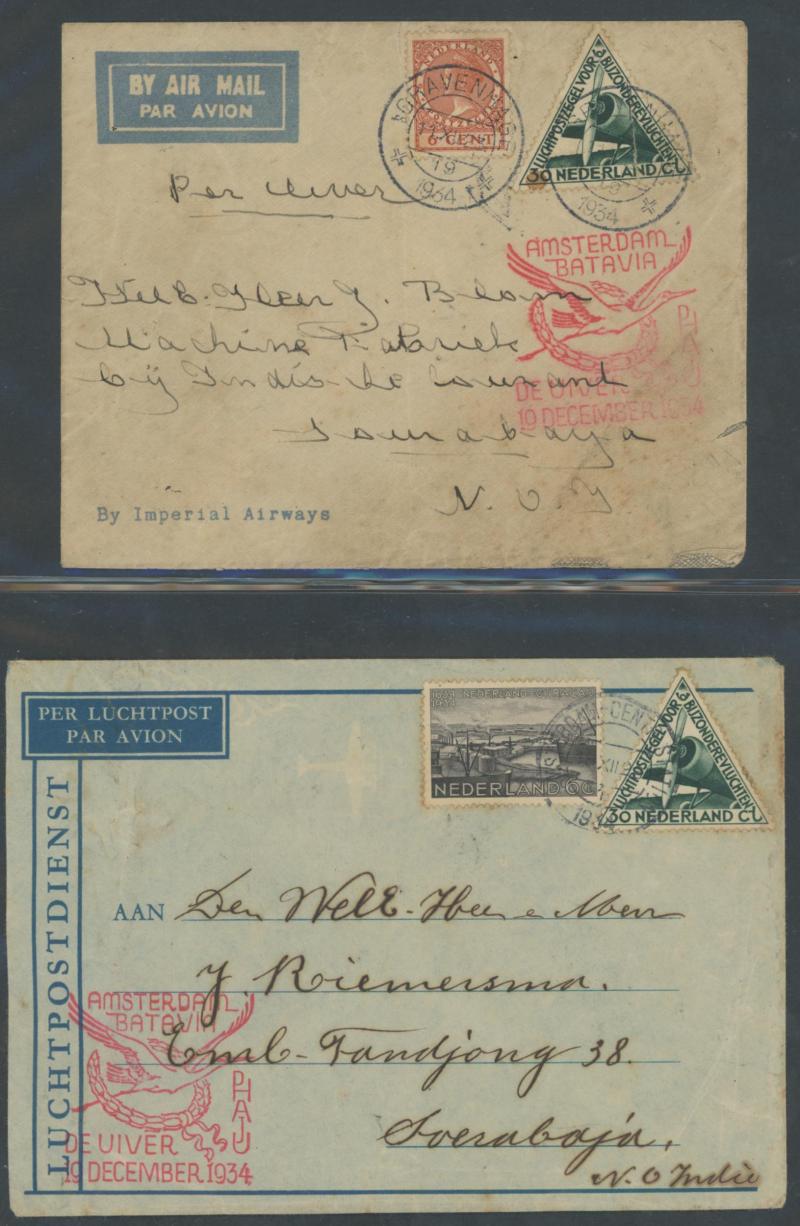 BY AIR MAIL
PAR AVION
NEDERLAND
6 CENT
LUCHTPOSTZEGEL VOOR BIJZONDERE VLUCHTEN
30 NEDERLAND CT
'S GRAVENHAGE
19
1934
1934
Per Uiver
AMSTERDAM
BATAVIA
PHAJU
DE UIVER
19 DECEMBER 1934
WelE. Heer J. Blom
Machine Fabriek
bij Indische Courant
Sourabaya
N. O. I
By Imperial Airways
PER LUCHTPOST
PAR AVION
LUCHTPOSTDIENST
1634 NEDERLAND CURAÇAO
1934
NEDERLAND 6 C
LUCHTPOSTZEGEL VOOR BIJZONDERE VLUCHTEN
30 NEDERLAND CT
XII
1934
AAN Den WelE. Heer
J. Riemersma.
Emb-Tandjong 38.
Soerabaja,
N. O Indië
AMSTERDAM
BATAVIA
PHAJU
DE UIVER
19 DECEMBER 1934